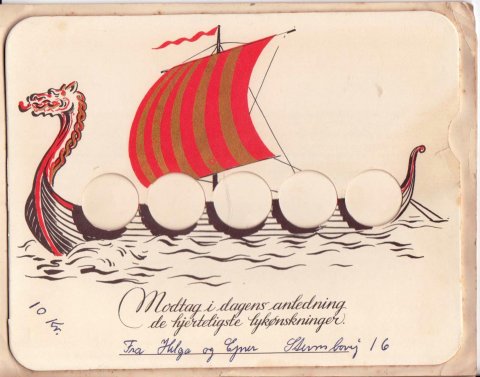 Modtag i dagens anledning
de hjerteligste lykønskninger.
10 Kr.
Fra Helga og Ejner 16